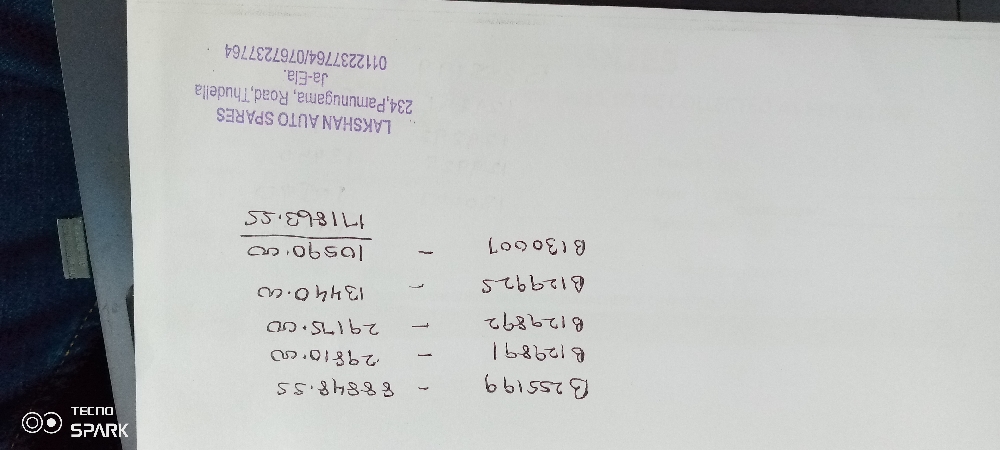 B255199 - 88848.55
B129891 - 29810.00
B129892 - 29175.00
B129925 - 13440.00
B130007 - 10590.00
171863.55
LAKSHAN AUTO SPARES
234,Pamunugama, Road,Thudella
Ja-Ela.
0112237764/0767237764
TECNO
SPARK